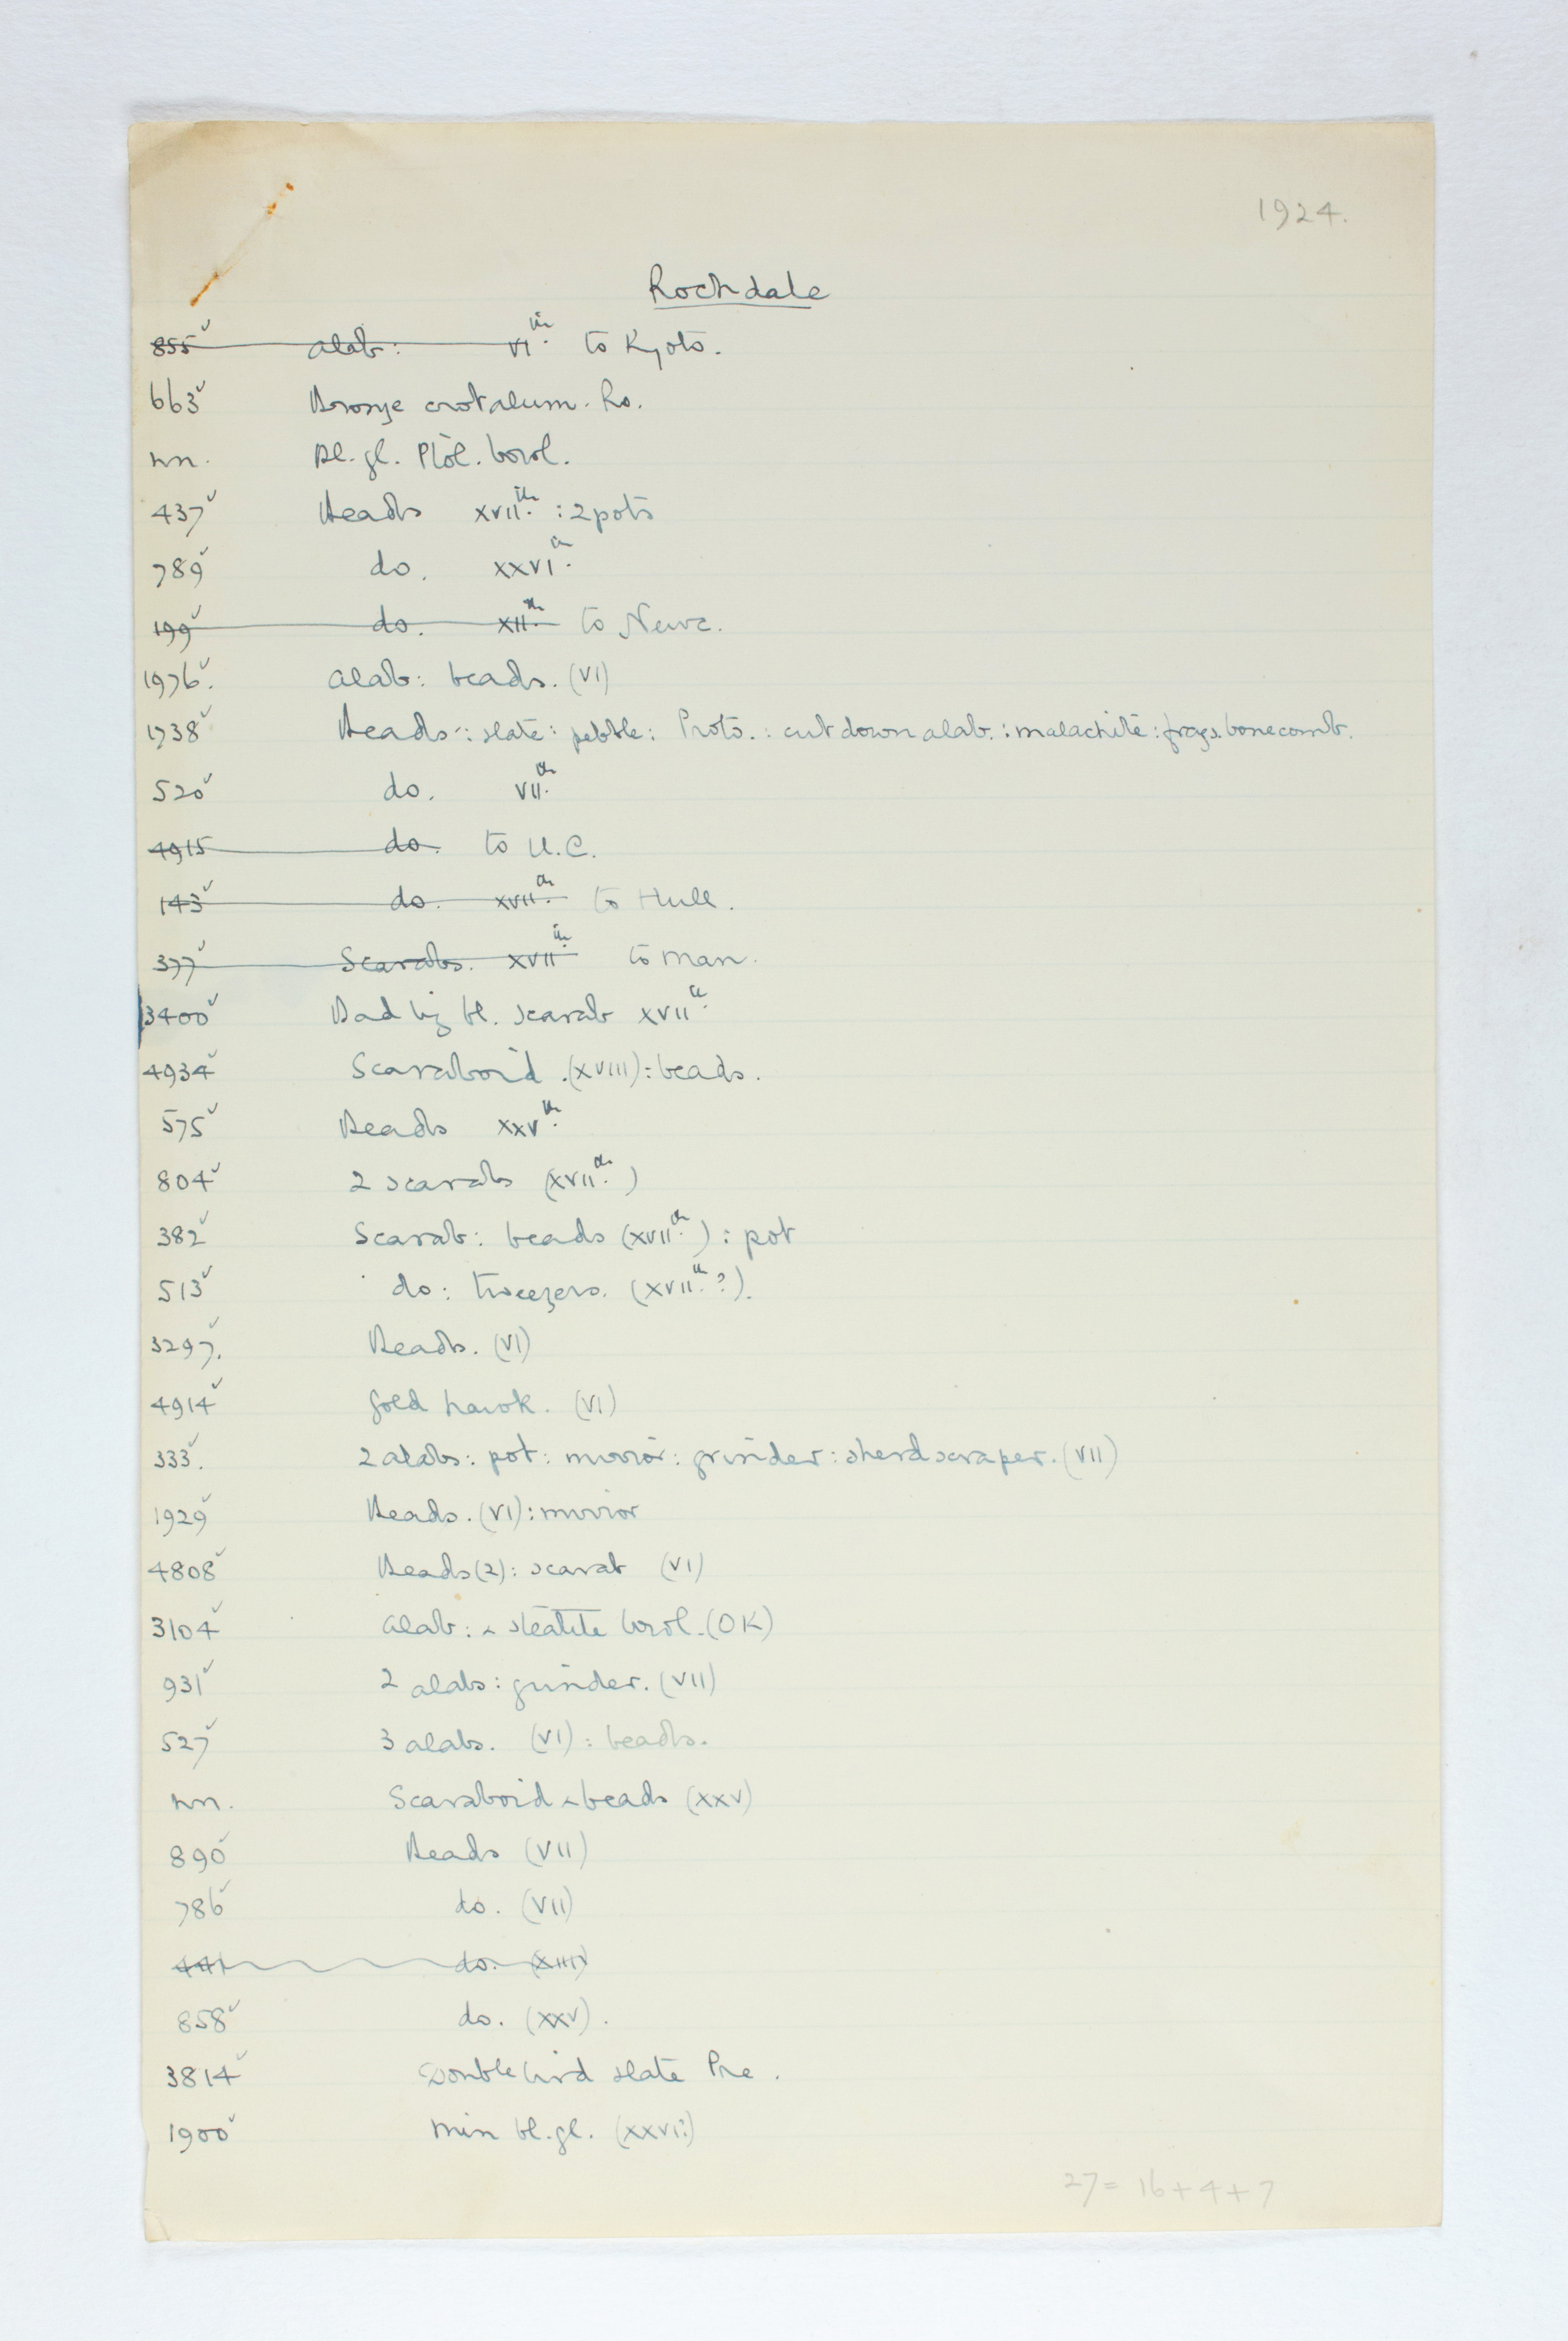 1924.
Rochdale
855 ✓ Alab: VI th. to Kyoto.
663 ✓ Bronze crotalum. Ro.
nn. Bl. gl. Ptol. bowl.
437 ✓ Beads XVII th. : 2 pots
789 ✓ do. XXVI th.
199 ✓ do. XII th. to Newc.
1976. ✓ Alab: beads. (VI)
1738 ✓ Beads: slate: pebble: Proto. : cut down alab. : malachite: frags. bone comb.
520 ✓ do. VII th.
4915 do. to U.C.
143 ✓ do. XVII th. to Hull.
377 ✓ Scarabs. XVII th. to Man.
3400 ✓ Bad big bl. scarab XVII th.
4934 ✓ Scaraboid. (XVIII): beads.
575 ✓ Beads XXV th.
804 ✓ 2 scarabs (XVII th.)
382 ✓ Scarab: beads (XVII th.) : pot
513 ✓ do: tweezers. (XVII th. ?).
3297. ✓ Beads. (VI)
4914 ✓ Gold hawk. (VI)
333. ✓ 2 alabs: pot: mirror: grinder: sherd scraper. (VII)
1929 ✓ Beads. (VI): mirror
4808 ✓ Beads (2): scarab (VI)
3104 ✓ Alab: & steatite bowl. (OK)
931 ✓ 2 alabs: grinder. (VII)
527 ✓ 3 alabs. (VI): beads.
nn. Scaraboid & beads (XXV)
890 ✓ Beads (VII)
786 ✓ do. (VII)
441 do. (XIII)
858 ✓ do. (XXV).
3814 ✓ Double bird slate Pre.
1900 ✓ Min bl. gl. (XXVI?)
27 = 16 + 4 + 7